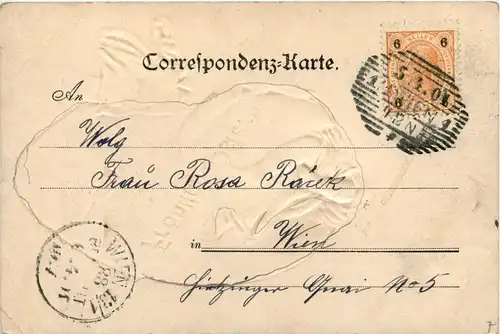 6 6
Correspondenz-Karte.
5.4.01
WIEN 1
An
Wolg
Frau Rosa
in Wien
Hietzinger Quai No 5
WIEN 13/1